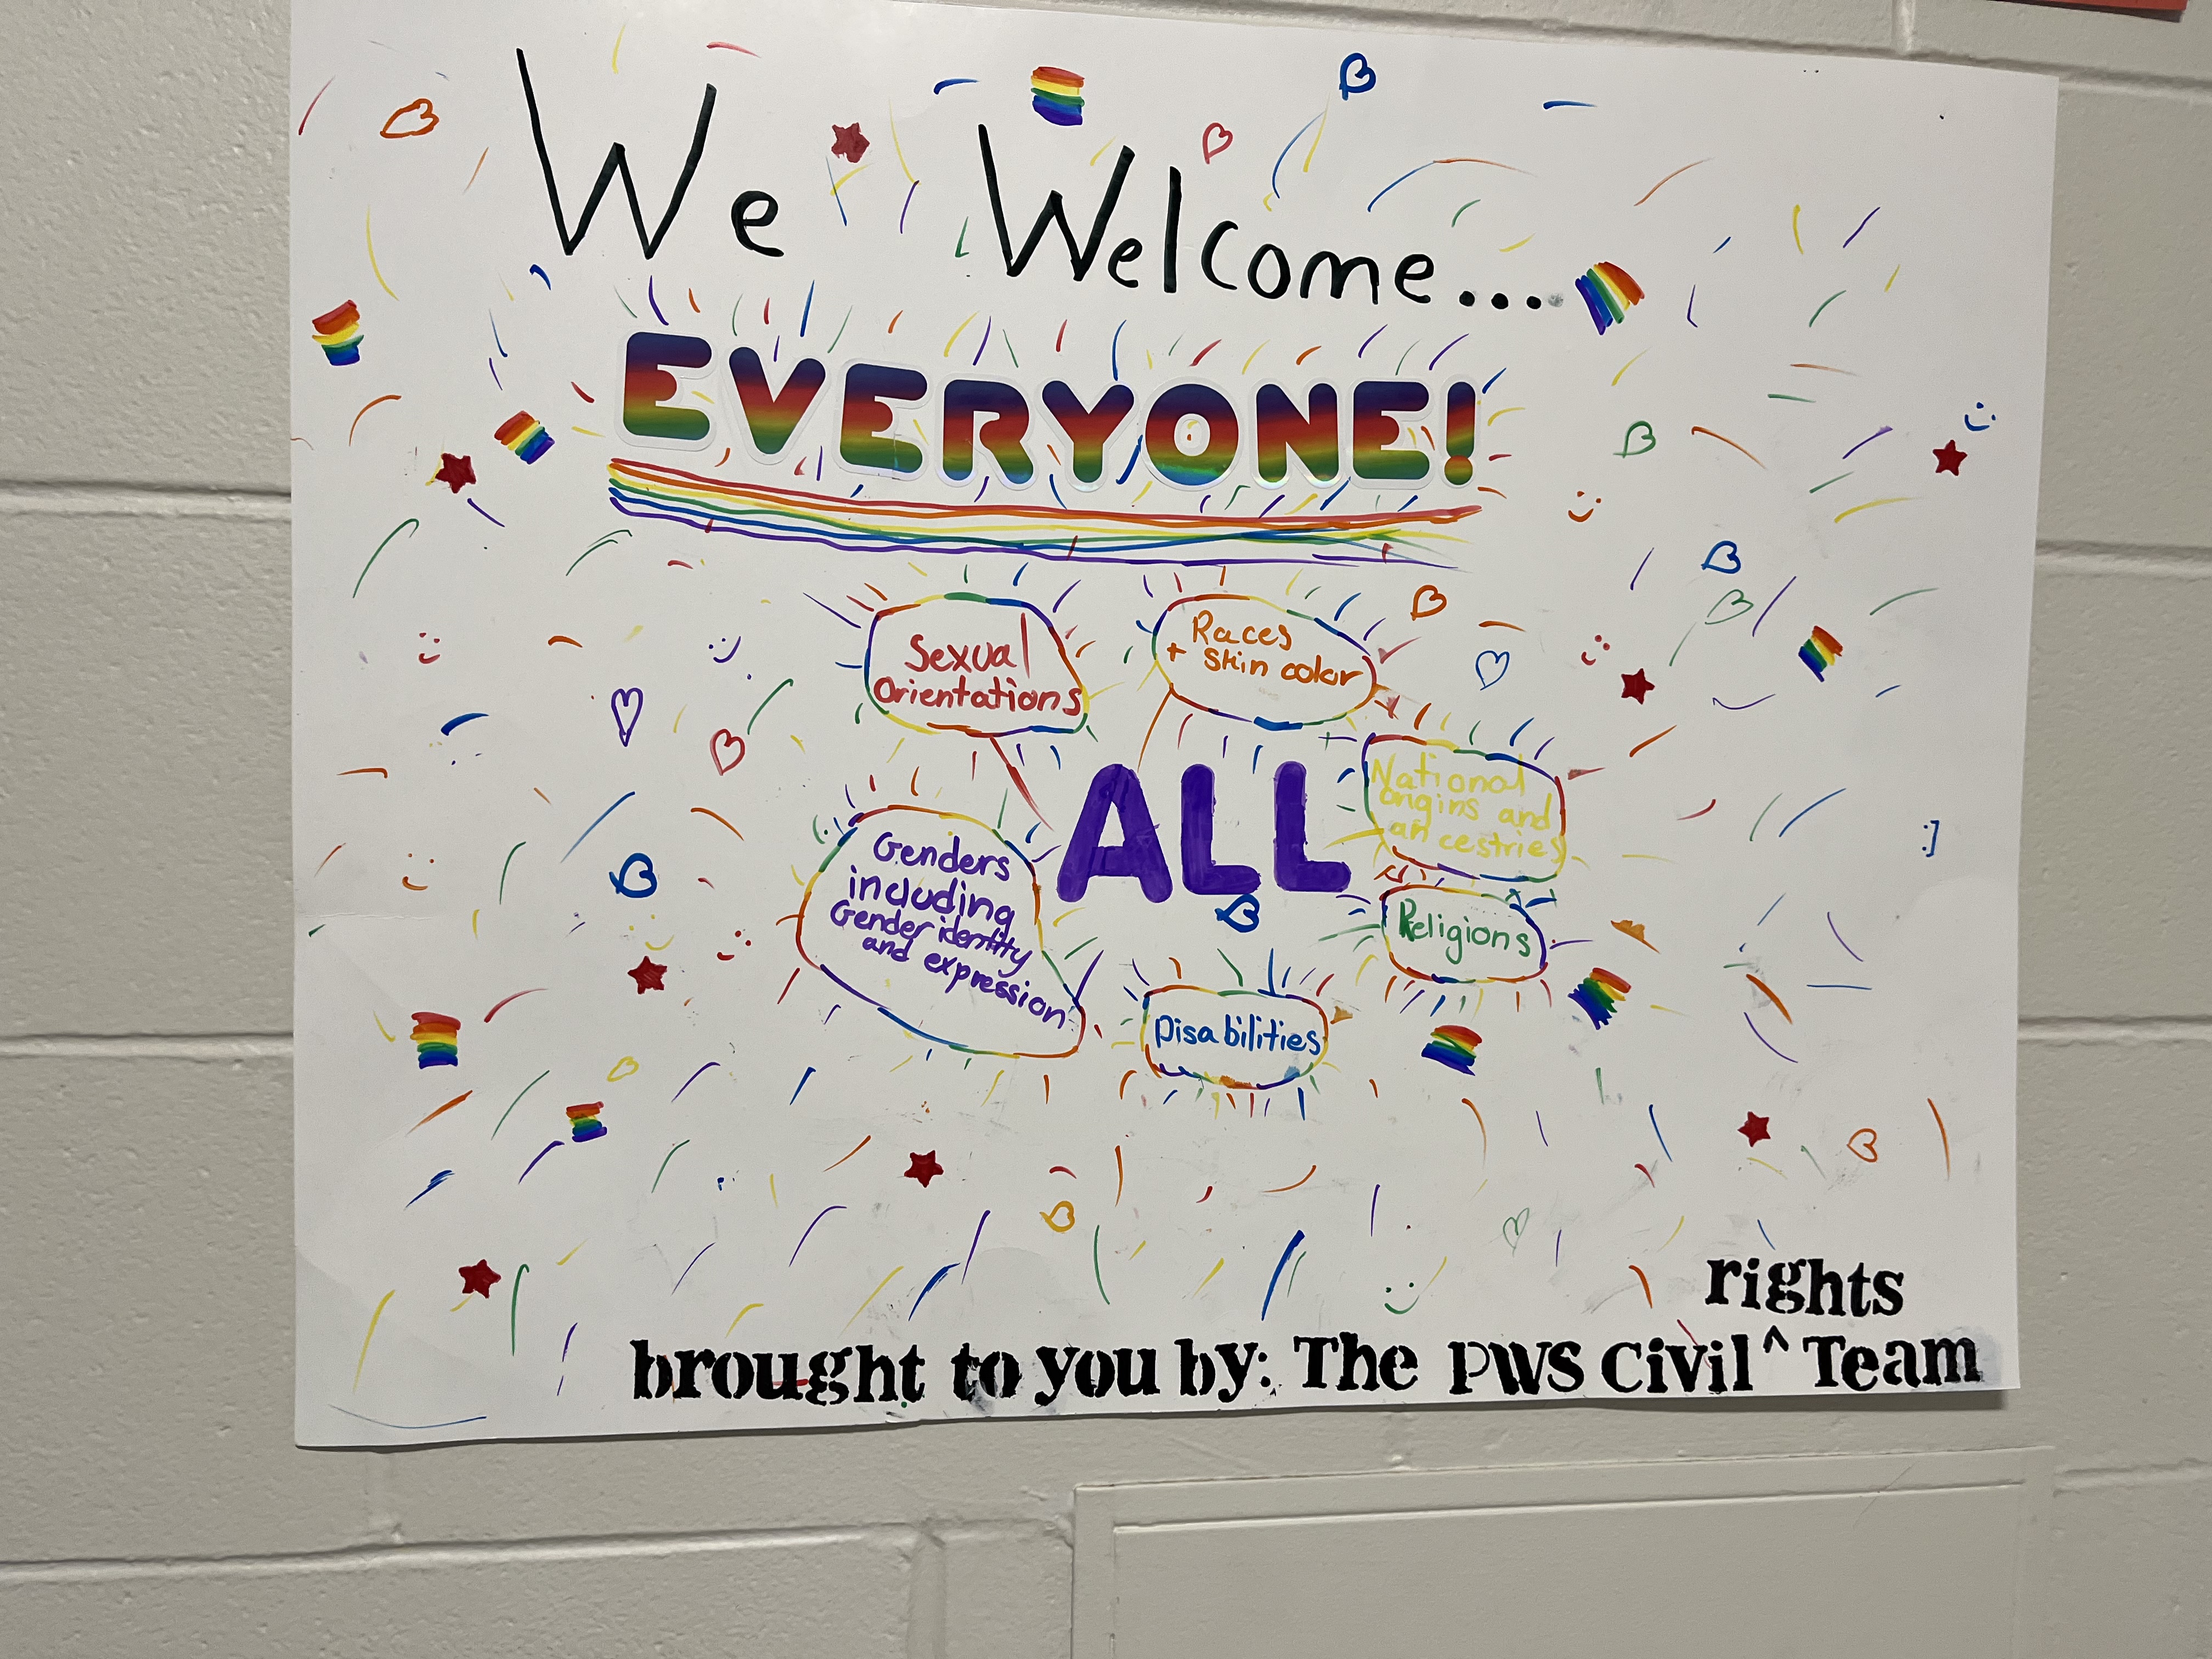 We Welcome...
EVERYONE!
Sexual
Orientations
Races
+ Skin color
ALL
National
origins and
ancestries
Genders
including
Gender identity
and expression
Religions
Disabilities
rights
brought to you by: The PWS Civil ^ Team